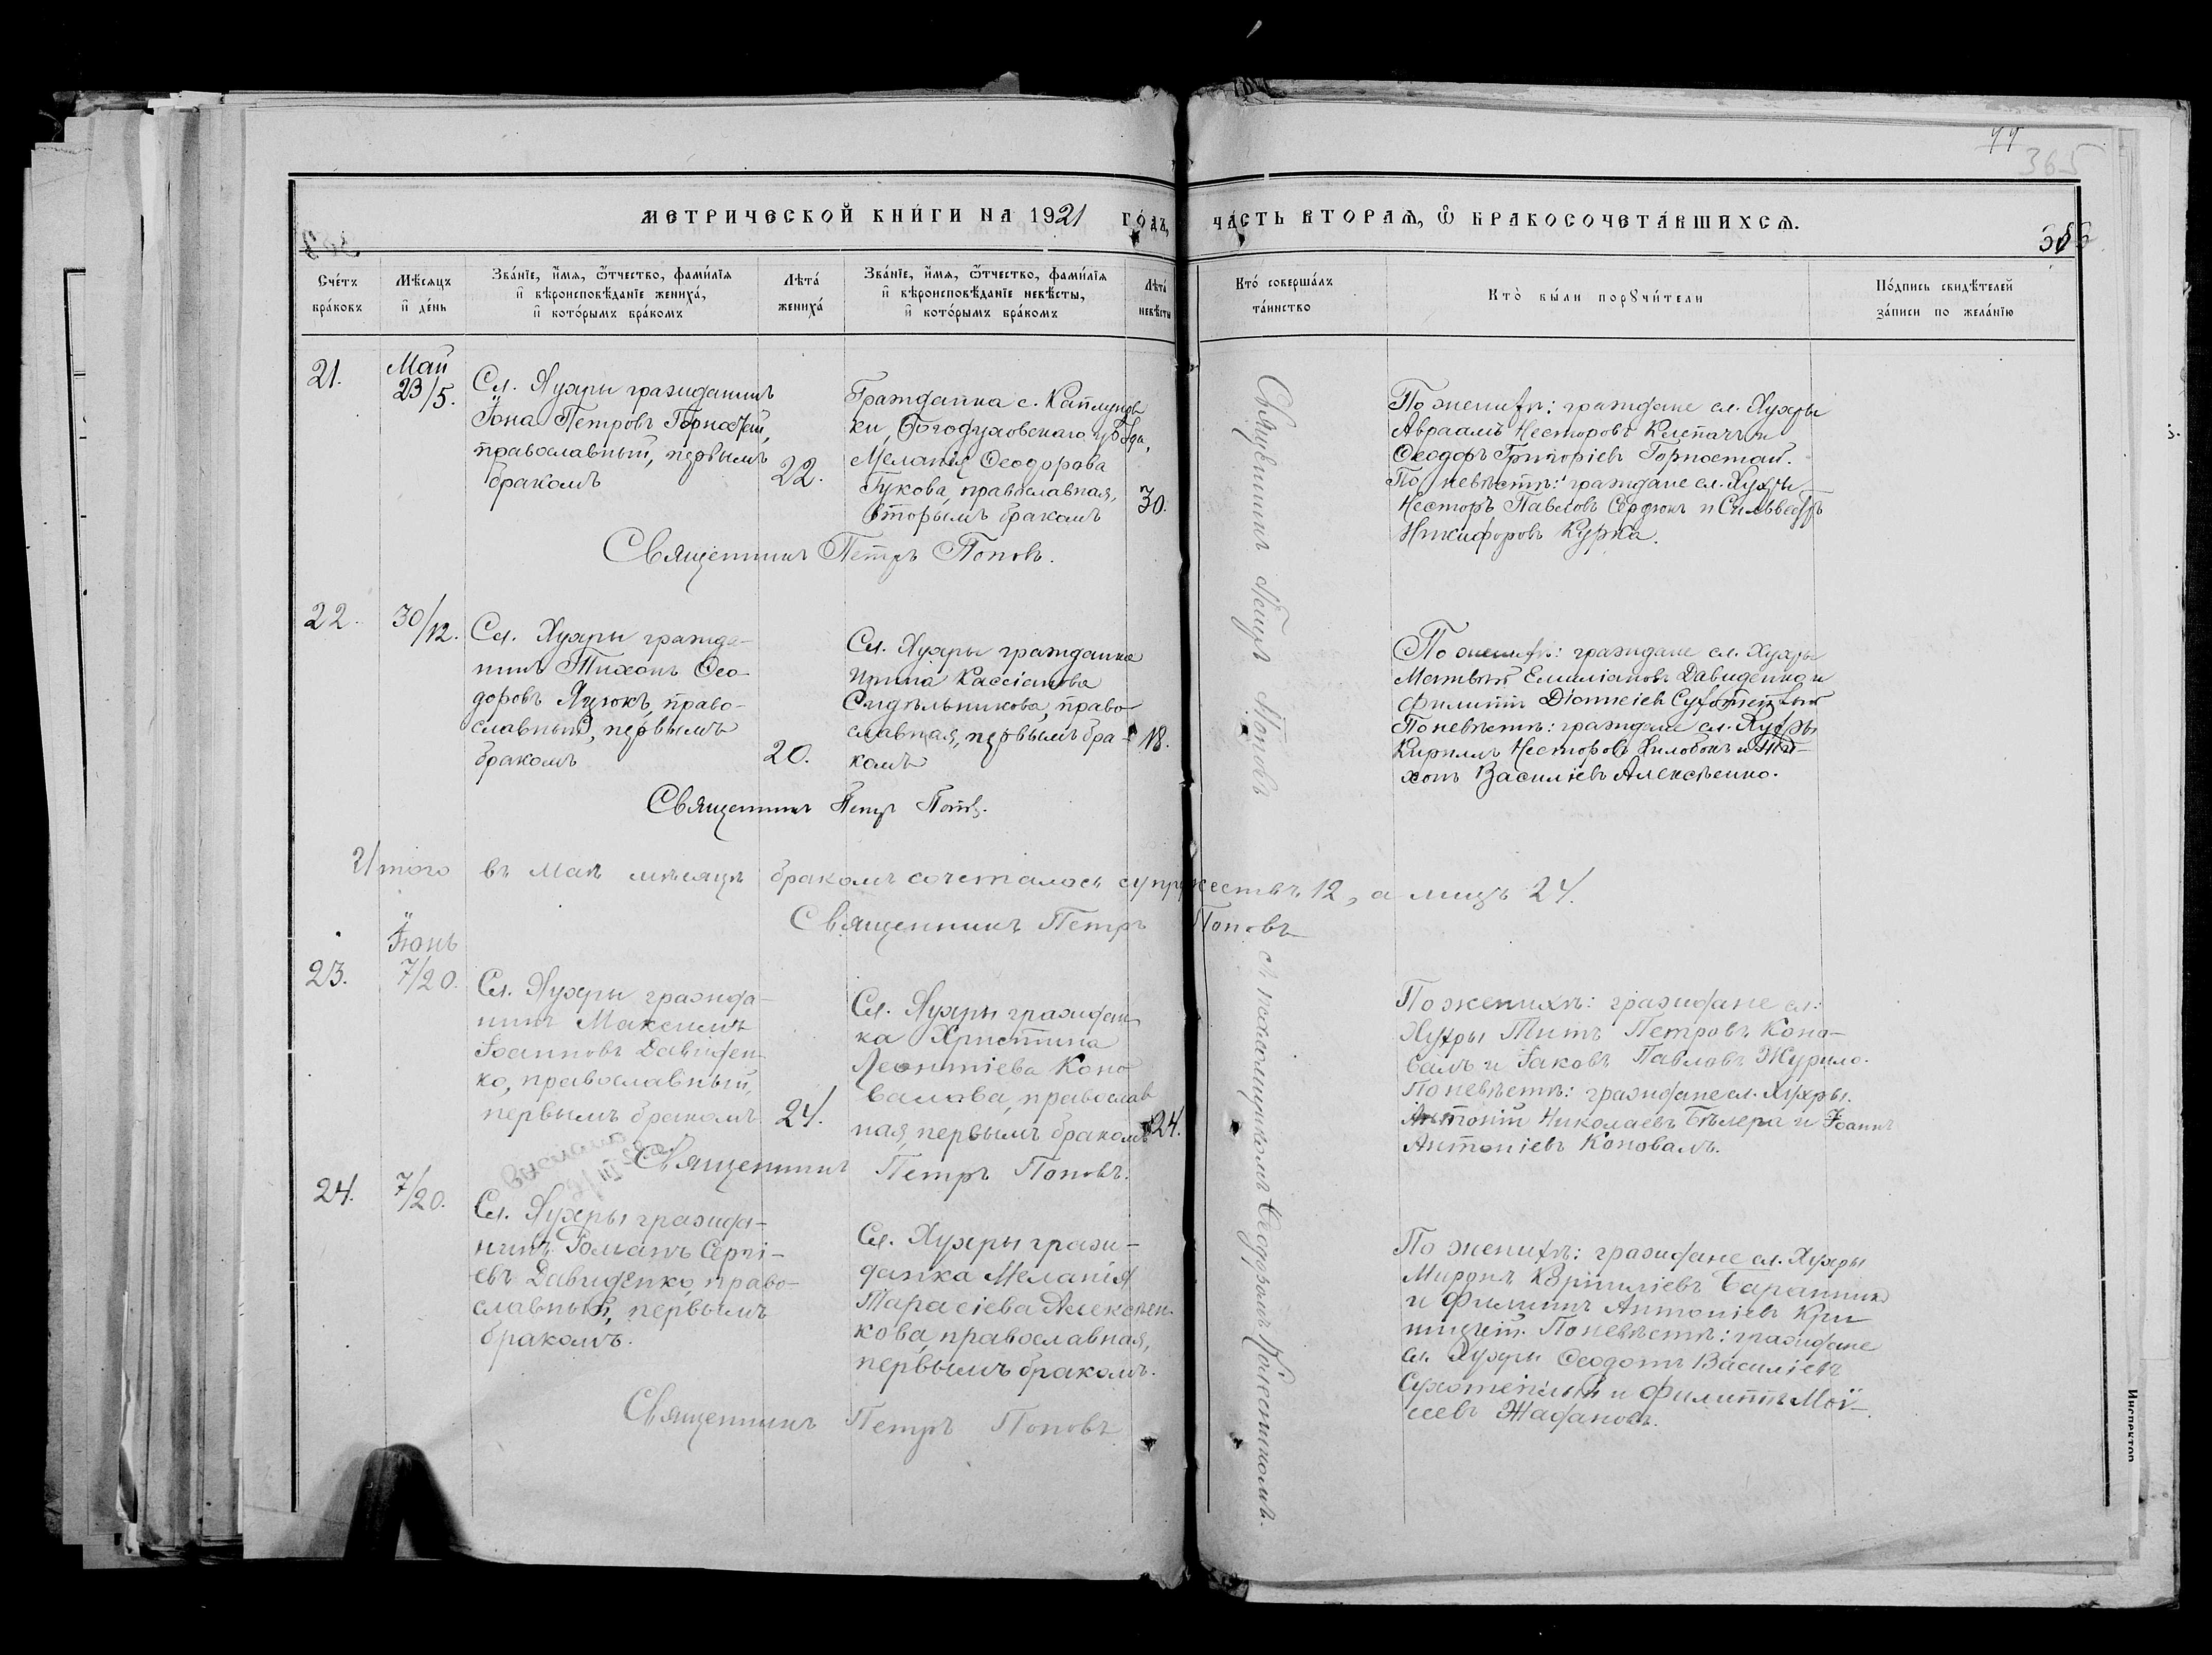 77
365
МЕТРИЧЕСКОЙ КНИГИ НА 1921 ГОДЪ, ЧАСТЬ ВТОРАЯ, Ѡ БРАКОСОЧЕТАВШИХСЯ.
Счетъ браковъ
Мѣсяцъ и день
Званіе, имя, ѿчество, фамилія
и вѣроисповѣданіе жениха,
и которымъ бракомъ
Лѣта жениха
Званіе, имя, ѿчество, фамилія
и вѣроисповѣданіе невѣсты,
и которымъ бракомъ
Лѣта невѣсты
Кто совершалъ
таинство
Кто были порꙋчители
Подпись свидѣтелей
записи по желанію
21.
Май
23/5.
Сл. Хухры гражданинъ
Іона Петровъ Горностай,
православный, первымъ
бракомъ
22.
Гражданка с. Каплунов
ки, Богодуховскаго уѣзда,
Меланія Ѳеодорова
Гукова, православная,
вторымъ бракомъ
30.
По женихѣ: граждане сл. Хухры
Авраамъ Несторовъ Клепачъ и
Ѳеодоръ Григоріевъ Горностай.
По невѣстѣ: граждане сл. Хухры
Несторъ Павловъ Сердюкъ и Сильвестръ
Никифоровъ Курка.
Священникъ Петръ Поповъ.
22.
30/12.
Сл. Хухры гражда-
нинъ Тихонъ Ѳео-
доровъ Яцюкъ, право-
славный, первымъ
бракомъ
20.
Сл. Хухры гражданка
Ирина Кассіанова
Сидѣльникова, право-
славная, первымъ бра-
комъ
18.
По женихѣ: граждане сл. Хухры
Матвѣй Емиліановъ Давиденко и
Филиппъ Діонисіевъ
По невѣстѣ: граждане сл. Хухры
Кириллъ Несторовъ и Ти-
хонъ Василіевъ Алексѣенко.
Священникъ Петръ Поповъ.
Итого въ маѣ мѣсяцѣ бракомъ сочеталось супружествъ 12, а лицъ 24.
Священникъ Петръ Поповъ
Іюнь
23.
7/20.
Сл. Хухры гражда-
нинъ Максимъ
Іоанновъ Давиден-
ко, православный,
первымъ бракомъ
24.
Сл. Хухры граждан
ка Христина
Леонтіева Коно
валова, православ
ная, первымъ бракомъ
24.
По женихѣ: граждане сл.
Хухры Титъ Петровъ Коно-
валъ и Іаковъ Павловъ Журило.
По невѣстѣ: граждане сл. Хухры.
Антоній Николаевъ и Іоаннъ
Антоніевъ Коновалъ.
Священникъ Петръ Поповъ.
24.
7/20.
Сл. Хухры гражда-
нинъ Романъ Сергі-
евъ Давиденко, право-
славный, первымъ
бракомъ.
Сл. Хухры граж-
данка Меланія
Тарасіева Алексѣен-
кова, православная,
первымъ бракомъ.
По женихѣ: граждане сл. Хухры
Миронъ
и Филиппъ Антоніевъ Кри
ницкій. По невѣстѣ: граждане
сл. Хухры Ѳеодотъ Василіевъ
и Филиппъ Мої-
сеевъ Жадановъ.
Священникъ Петръ Поповъ
Священникъ Петръ Поповъ съ псаломщикомъ Ѳеодоромъ Колесникомъ.